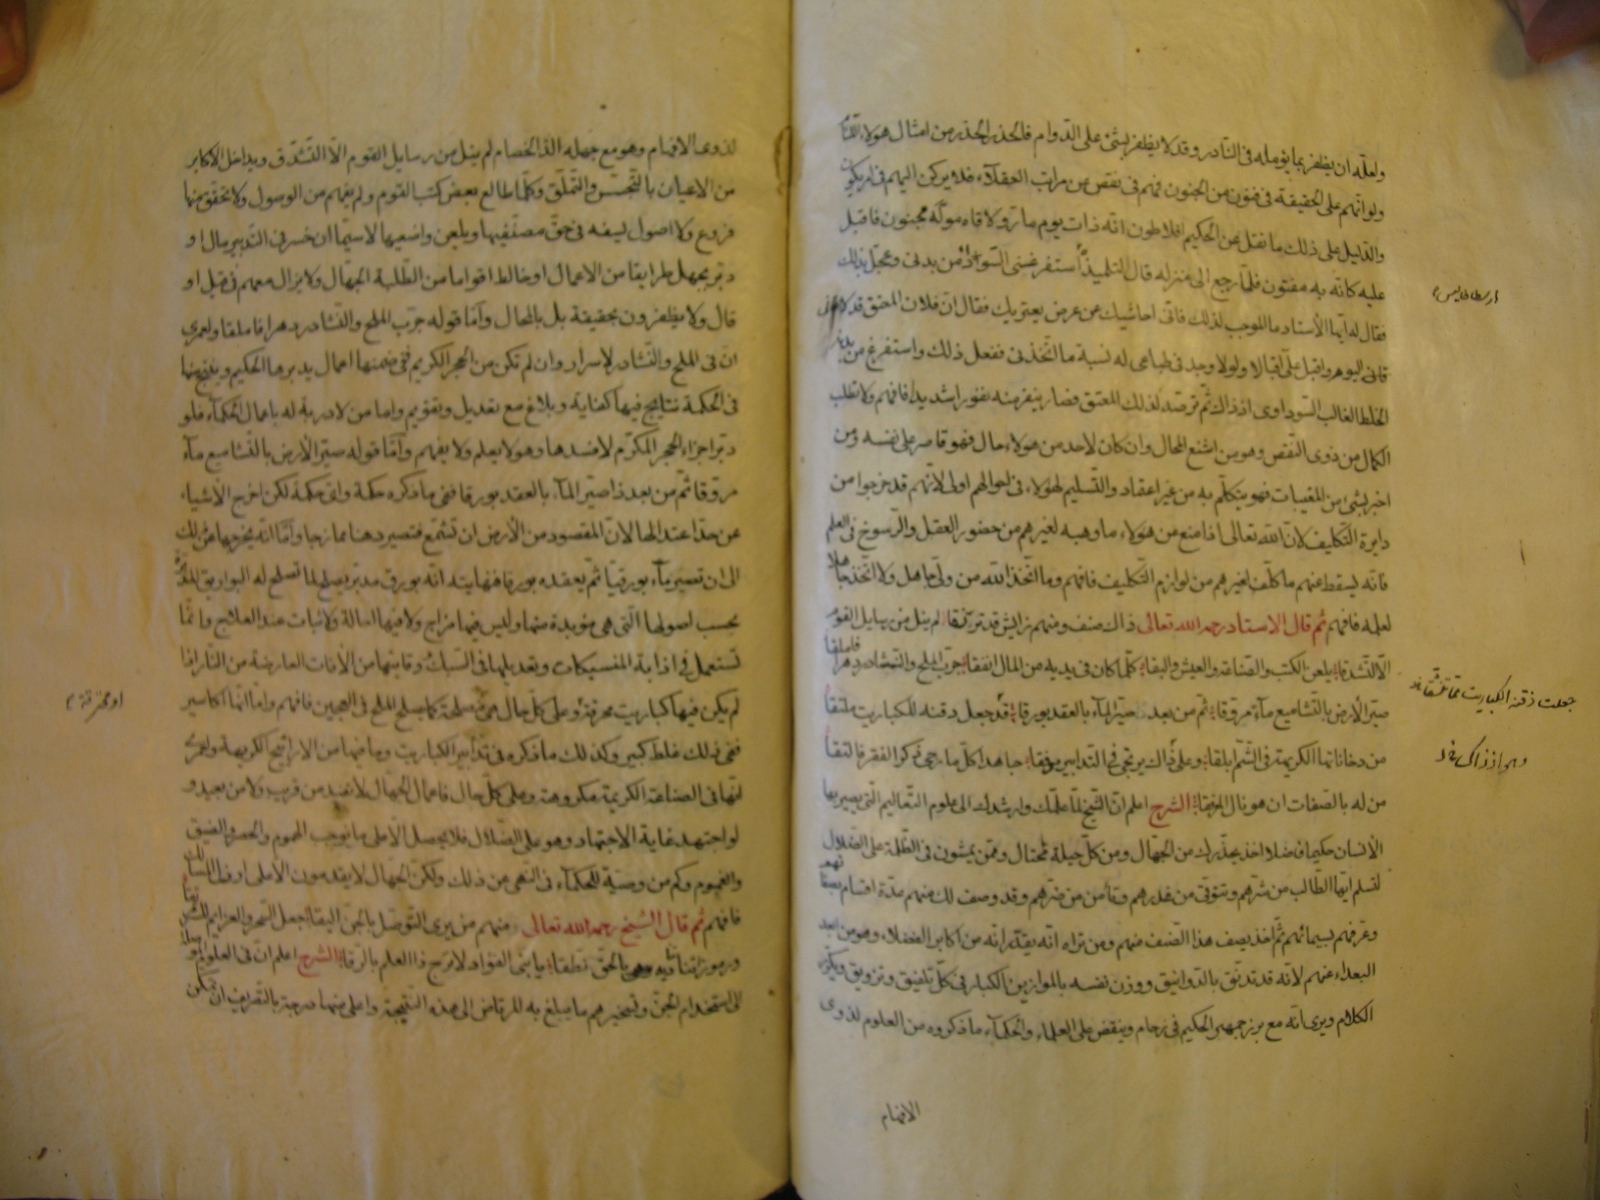 ولعلّه ان يظفر بما يؤمله فى النّادر وقد لا يظفر بشئ على الدّوام فالحذر الحذر من امثال هولاء
ولو انّهم على الحقيقة فى فنون من الجنون فهم فى نقص عن مراتب العقلاء فلا يركن اليهم
والدّليل على ذلك ما نقل عن الحكيم افلاطون انّه ذات يوم مارّ ولاقاه مولّه مجنون فاقبل
عليه كانّه به مفتون فلمّا رجع الى منزله قال لتلميذه استفرغنى السّوداء من بدنى وعجّل بذلك
فقال له ايّها الأستاد ما الموجب لذلك فانّى احاشيك عن عرض يعتريك فقال انّ فلان المعتق قد
قانى اليوم واقبل علىّ اقبالا ولولا وجد فى طباعى له نسبة ما اتّخذنى ففعل ذلك واستفرغ من بدنه
الخلط الغالب السّوداوى اذ ذاك ثمّ ترصّد لذلك المعتق فصار ينفر منه نفورا شديدا فافهم ولا تطلب
الكمال من ذوى النّقص وهو من اشنع المحال وان كان لاحد من هولاء حال فهو قاصر على نفسه ومن
اخبر بشئ من المغيبات فهو يتكلّم به من غير اعتقاد والتّسليم لهولاء فى احوالهم اولى لأنّهم قد خرجوا من
دايرة التّكليف لانّ اللّه تعالى اذا منع من هولاء ما وهبه لغيرهم من حضور العقل والرّسوخ فى العلم
فانّه يسقط عنهم ما كلّف لغيرهم من لوازم التّكليف فافهم وما اتّخذ اللّه من ولىّ جاهل ولا اتّخذ جاهلا
لعلمه فافهم ثم قال الاستاد رحمه الله تعالى ذاك صنف ومنهم لم ينل من رسايل القوم
الّا التّشدّقا يلعن الكتب والصّناعة والعيش والبقا كلّما كان فى يديه من المال انفقا جرّب الملح والنّشادر دهرا فاملقا
صيّر الأرض بالتّشاميع ماء مروّقا ثمّ من بعد صيّر الماء بالعقد بورقا قد جعل دقنه للكباريت ملتقا
من دخاناتها الكريهة فى الشّمّ ابلقا وعلى ذاك يرتجى فى التدابير موفقا جاهدا كلّما رجى ذكر الفقر فالتقا
من له بالصّفات ان هو نال الشرح اعلم انّ الشّيخ لمّا علّمك وارشدك الى علوم التّعاليم الّتى يصير بها
الأنسان حكيما فاضلا اخذ يحذّرك من الجهّال ومن كلّ حيلة محتال وممّن يمشون فى الظّلمة على الضّلال
لتسلم ايّها الطّالب من شرّهم وتتوقّى من غدرهم وتأمن من ضرّهم وقد وصف لك منهم عدّة اقسام
وعرّفهم بسيمائهم ثمّ اخذ يصف هذا الصّنف منهم ومن تراه انّه يعتقد انّه من اكابر الفضلاء وهو من ابعد
البعداء عنهم لانّه قد تدنّق بالدّوانيق ووزن نفسه بالموازين الكبار فى كلّ تلفيق وتزويق ويكثر
الكلام ويرى انّه مع بزرجمهر الحكيم فى زحام وينقض على العلماء والحكماء ما ذكروه من العلوم لذوى
الافهام
ارسطاطاليس
جعلت ذقنه الكباريت
وهو اذ ذاك
لذوى الافهام وهو مع جهله الدّ الخصام لم ينل من رسايل القوم الّا التّشدّق ويداخل الاكابر
من الاعيان بالتّجسّس والتّملّق وكلّما طالع بعض كتب القوم ولم يفهم من الوصول ولا تحقّق منها
فروع ولا اصول يسفه فى حقّ مصنّفيها ويلعن واضعيها لاسيّما ان خسر فى التّدبير مال او
دبّر بجهل طرايقا من الاعمال او خالط اقواما من الطّلبة الجهّال ولا يزال معهم فى قيل او
قال ولا يظفرون بحقيقة بل بالمحال وامّا قوله جرّب الملح والنّشادر دهرا فاملقا ولعمرى
انّ فى الملح والنّشادر لأسرار وان لم تكن من الحجر الكريم ففى ضمنها اعمال يدبرها الحكيم وينتج منها
فى الحكمة نتايج فيها كفاية وبلاغ مع تعديل وتقويم وامّا من لا دربة له باعمال الحكماء فلو
دبّر اجزاء الحجر المكرّم لافسدها وهو لا يعلم ولا يفهم وامّا قوله صيّر الأرض بالتّشاميع ماء
مروّقا ثمّ من بعد ذا صيّر الماء بالعقد بورقا ففى ما ذكره حكمة واىّ حكمة لكن اخرج الأشياء
عن حدّ اعتدالها لانّ المقصود من الأرض ان تشمّع فتصير دهنا مازجا وامّا انّه يخرجها عن ذلك
الى ان تصير ماء بورقيّا ثمّ يعقده بورقا فغايته انّه بورق مدبّر يصلح لما تصلح له البواريق
بحسب اصولها الّتى هى مؤيدة منها وليس فيها مزاج ولا فيها اسالة ولا ثبات عند العلاج وانّما
تستعمل فى اذابة المنسبكات وتعديلها فى السّبك ووقايتها من الأفات العارضة من النّار اذا
لم يكن فيها كباريت محرقة وعلى كلّ حال هى مصلحة كما يصلح الملح فى العجين فافهم وامّا انّها اكاسير
ففى ذلك غلط كبير وكذلك ما ذكره فى تدابير الكباريت وما فيها من الارايح الكريهة ولعمرى
انّها فى الصناعة الكريمة مكروهة وعلى كلّ حال فاعمال الجهّال لا تفيد من قريب ولا من بعيد و
لو اجتهد غاية الاجتهاد وهو على الضّلال فلا يحصل الّا على ما يوجب الهموم والحصر والضيق
والغموم وكم من وصيّة للحكماء فى النّهى عن ذلك ولكنّ الجهّال لا يقدمون الّا على
فافهم ثم قال الشيخ رحمه الله تعالى ومنهم من يرى التّوصّل بالجنّ اليقا جعل السّحر والعزايم للشّكل
ورموز اتتنا به بالحقّ نطقا يا بنى الفؤاد لا تزج ذا العلم بالرّقا الشرح اعلم انّ فى العلوم
الى استخدام الجنّ وتسخيرهم ما يبلغ به المرتاض الى هذه النّتيجة واعلى منها درجة بالتّصريف ان تمكّن
او محرقة